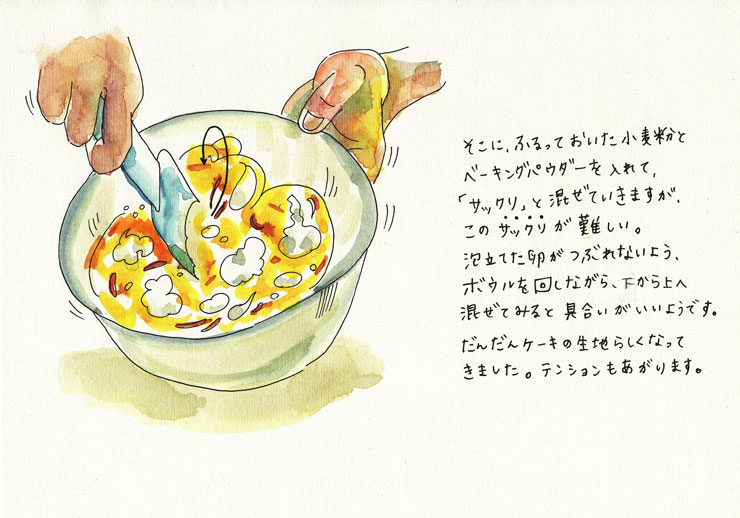 そこに、ふるっておいた小麦粉と
ベーキングパウダーを入れて、
「サックリ」と混ぜていきますが、
このサックリが難しい。
泡立てた卵がつぶれないよう、
ボウルを回しながら、下から上へ
混ぜてみると具合いがいいようです。
だんだんケーキの生地らしくなって
きました。テンションもあがります。